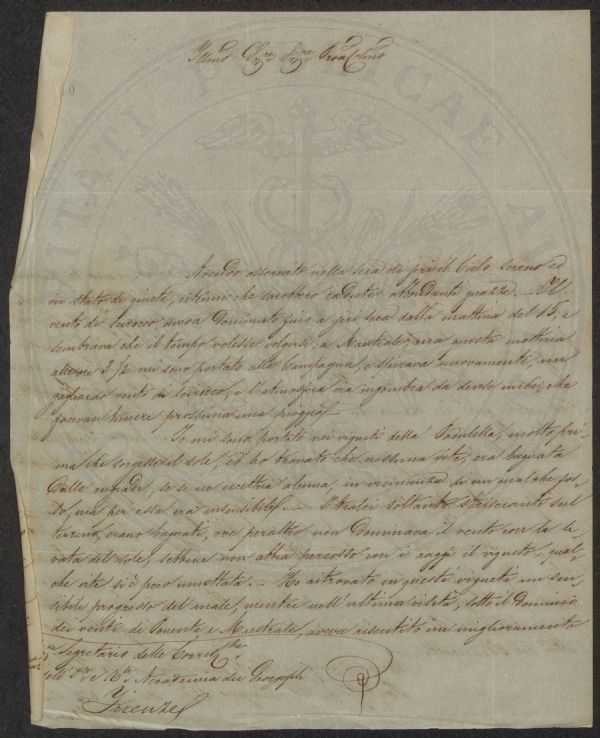 Illmo Sigre Sigre Pron Colmo
Avendo osservato nella sera di jeri il Cielo sereno ed
in stato di quiete, ritenni che sarebbero cadute abbondanti guazze. – Il
vento di scirocco aveva dominato fino a jeri sera dalla mattina del 15, e
sembrava che il tempo volesse volgersi a Maestrale; ma questa mattina
alle ore 3 ½ mi sono portato alla Campagna, e spirava nuovamente, un
gagliardo vento di scirocco, e l'atmosfera era ingombra da dense nubi, che
facevan temere prossima una pioggia.
Io mi sono portato nei vigneti della Padulella, molto pri-
ma che sorgesse il sole, ed ho trovato che nessuna vite, era bagnata
dalle rugiade, se se ne eccettua alcuna, in vicinanza di un qualche fos-
so, ma per essa era insensibile. – I tralci soltanto striscianti sul
terreno, erano bagnati, ove peraltro non dominava il vento con la le-
vata del sole, sebbene non abbia percosso con i raggi il vigneto, qual-
che vite si è poco umettata. – Ho ritrovato in questi vigneti un sen-
sibile progresso del male, mentre nell'ultima visita, sotto il dominio
dei venti di Ponente e Maestrale, aveva risentito un miglioramento
Segretario delle Corrispze
dell' Accademia dei Georgofili
Firenze